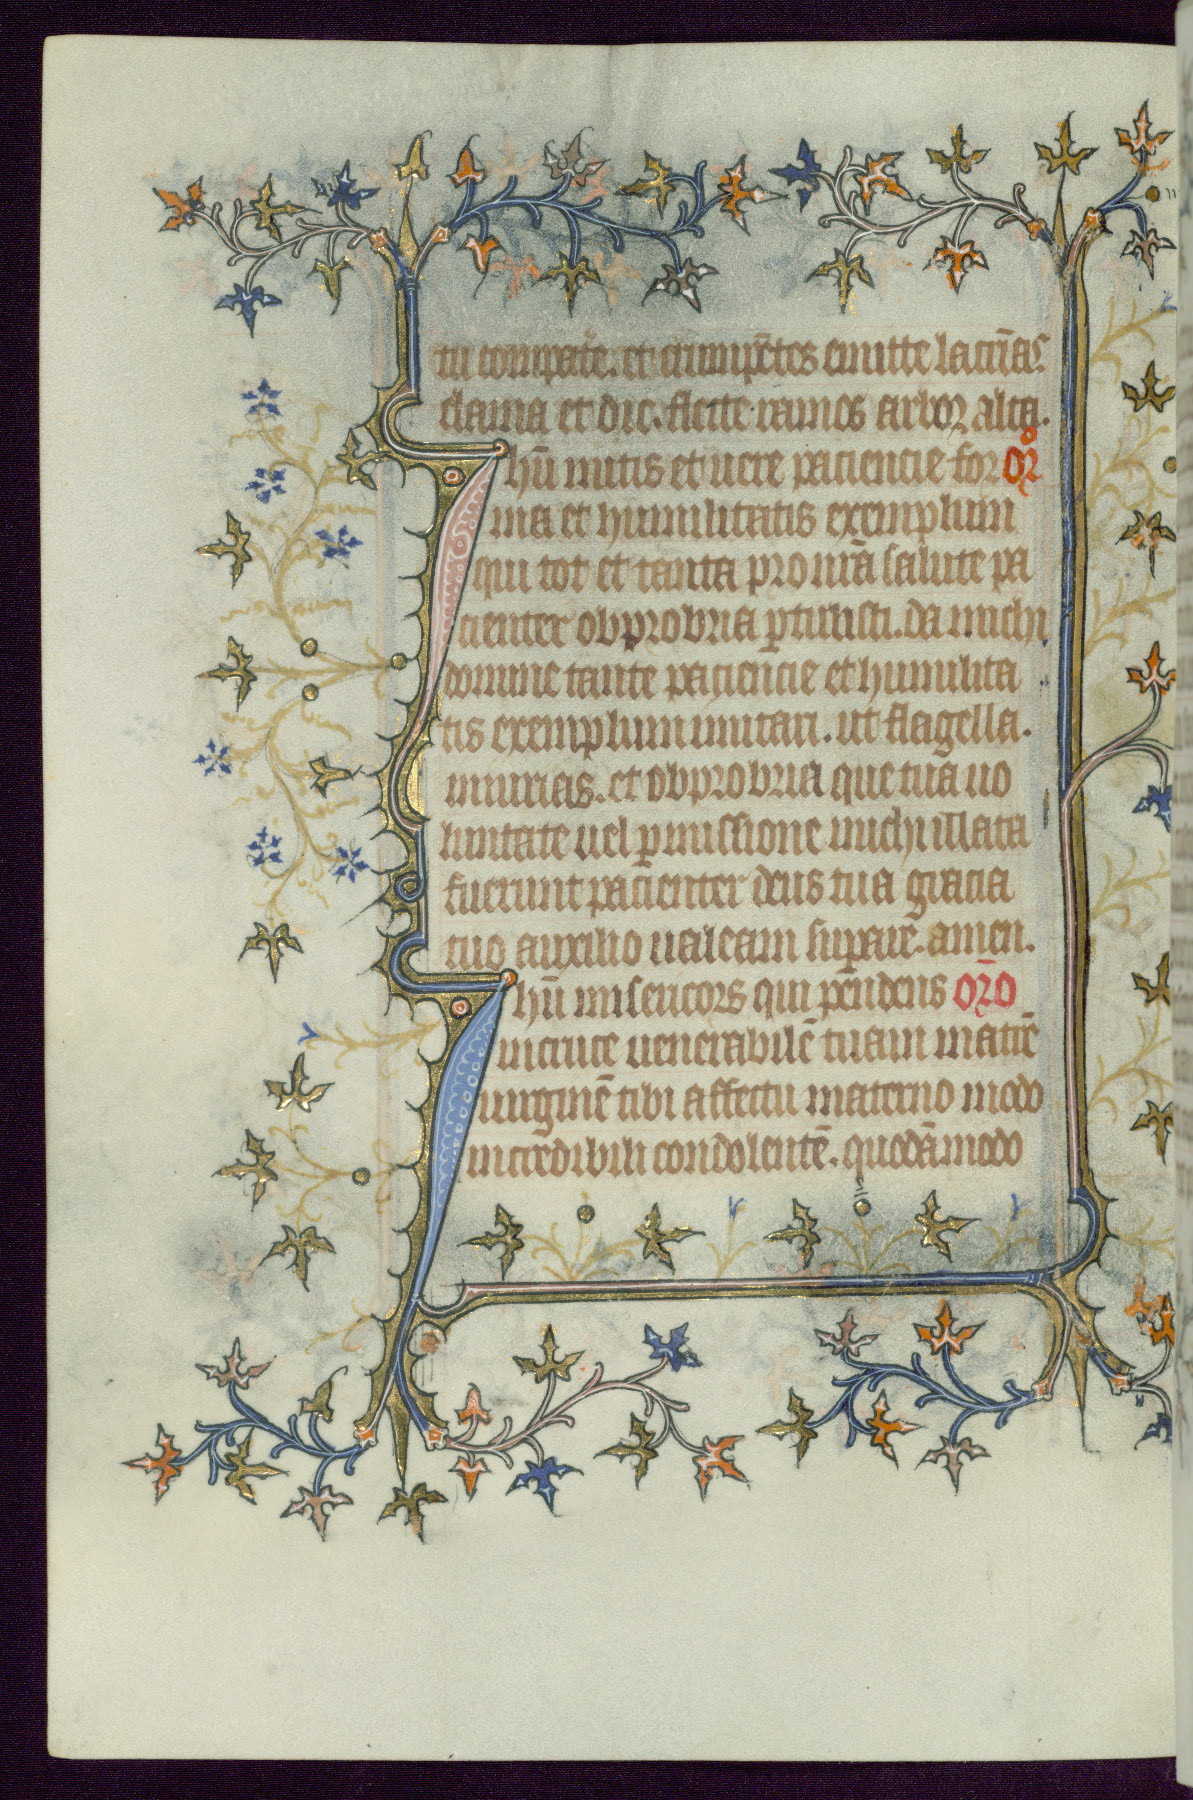 tu compate᷑. et erumpe᷑tes emitte lacri᷑as
clama et dic. flecte ramos arbor alta.
Ihū mitis et uere paciencie for or̄o
ma et humilitatis exemplum
qui tot et tanta pro nr̄a salute pa
cienter obprobria ꝑtulisti. da michi
domine tante paciencie et humilita
tis exemplum imitari. ut flagella.
iniurias. et obprobria que tua uo
luntate uel ꝑmissione michi illata
fuerunt pacienter deus tua gracia
tuo auxilio ualeam suꝑare. amen.
Ihū misericors qui pēndens or̄o
in cruce uenerabilē tuam matrē
uirginē tibi affectu materno modo
incredibili condolentē. quodāmodo